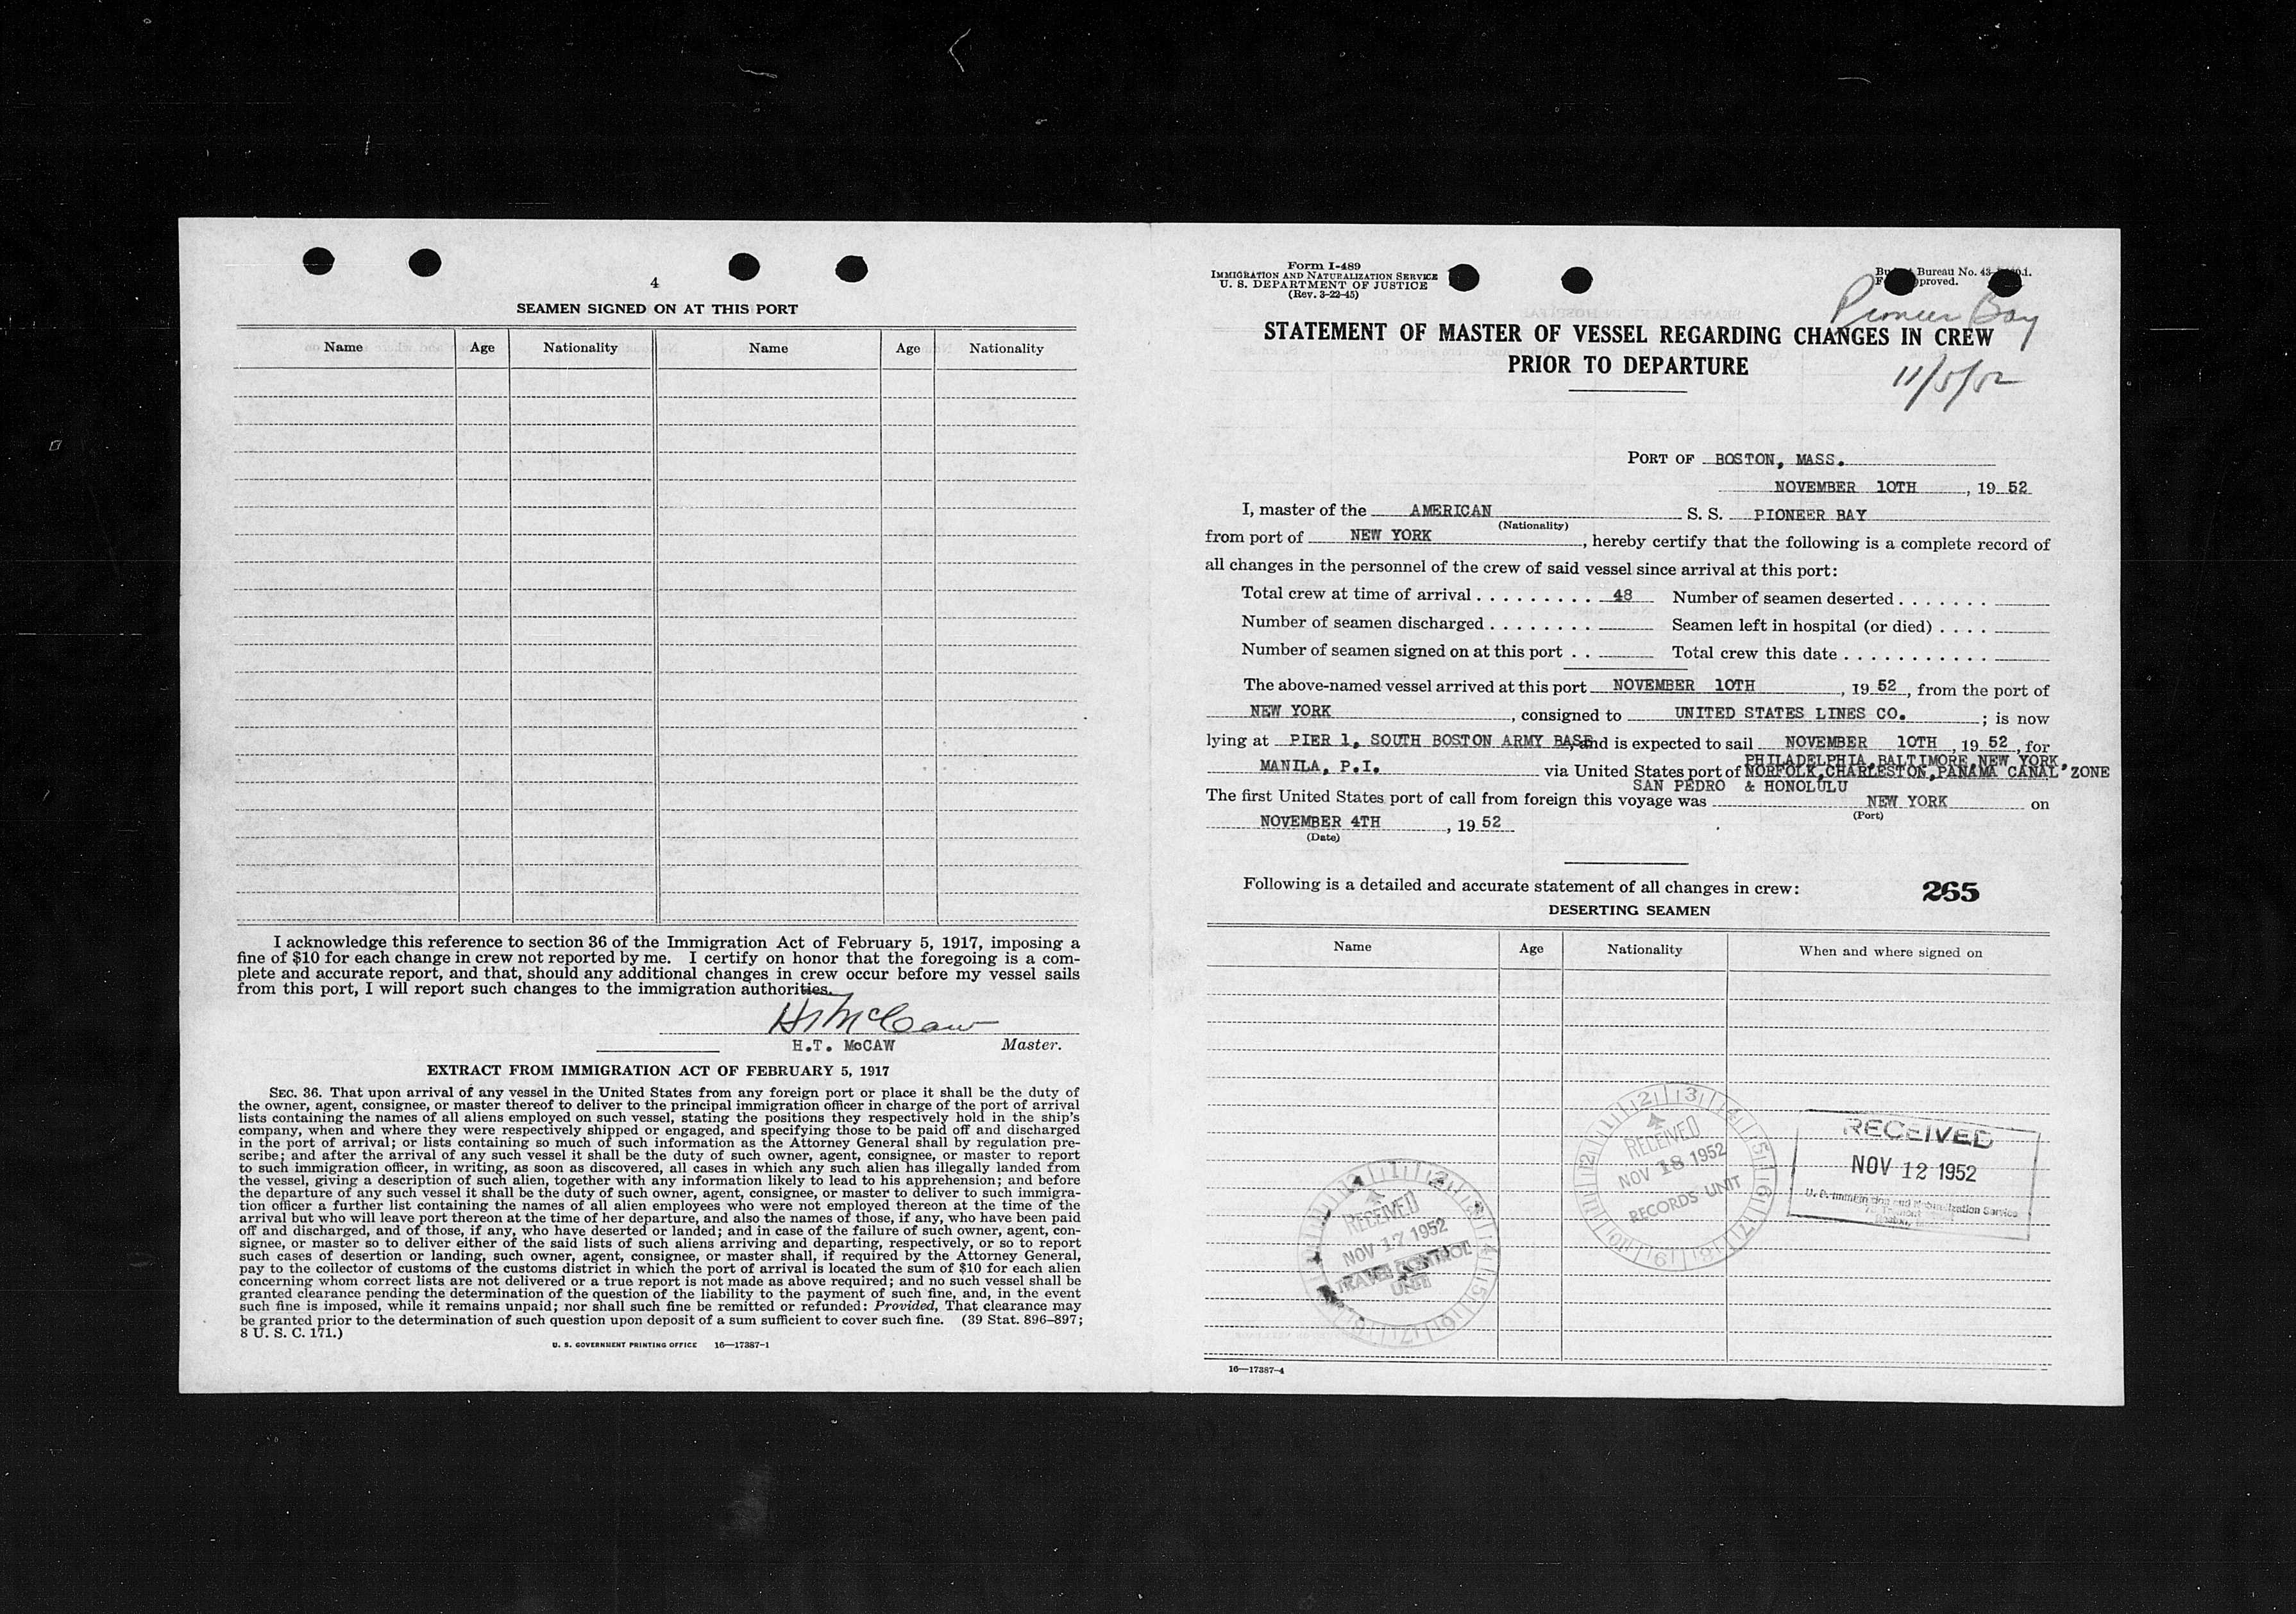 4
SEAMEN SIGNED ON AT THIS PORT
Name Age Nationality Name Age Nationality
I acknowledge this reference to section 36 of the Immigration Act of February 5, 1917, imposing a
fine of $10 for each change in crew not reported by me. I certify on honor that the foregoing is a com-
plete and accurate report, and that, should any additional changes in crew occur before my vessel sails
from this port, I will report such changes to the immigration authorities.
H T McCaw
H.T. McCAW Master.
EXTRACT FROM IMMIGRATION ACT OF FEBRUARY 5, 1917
SEC. 36. That upon arrival of any vessel in the United States from any foreign port or place it shall be the duty of
the owner, agent, consignee, or master thereof to deliver to the principal immigration officer in charge of the port of arrival
lists containing the names of all aliens employed on such vessel, stating the positions they respectively hold in the ship's
company, when and where they were respectively shipped or engaged, and specifying those to be paid off and discharged
in the port of arrival; or lists containing so much of such information as the Attorney General shall by regulation pre-
scribe; and after the arrival of any such vessel it shall be the duty of such owner, agent, consignee, or master to report
to such immigration officer, in writing, as soon as discovered, all cases in which any such alien has illegally landed from
the vessel, giving a description of such alien, together with any information likely to lead to his apprehension; and before
the departure of any such vessel it shall be the duty of such owner, agent, consignee, or master to deliver to such immigra-
tion officer a further list containing the names of all alien employees who were not employed thereon at the time of the
arrival but who will leave port thereon at the time of her departure, and also the names of those, if any, who have been paid
off and discharged, and of those, if any, who have deserted or landed; and in case of the failure of such owner, agent, con-
signee, or master so to deliver either of the said lists of such aliens arriving and departing, respectively, or so to report
such cases of desertion or landing, such owner, agent, consignee, or master shall, if required by the Attorney General,
pay to the collector of customs of the customs district in which the port of arrival is located the sum of $10 for each alien
concerning whom correct lists are not delivered or a true report is not made as above required; and no such vessel shall be
granted clearance pending the determination of the question of the liability to the payment of such fine, and, in the event
such fine is imposed, while it remains unpaid; nor shall such fine be remitted or refunded: Provided, That clearance may
be granted prior to the determination of such question upon deposit of a sum sufficient to cover such fine. (39 Stat. 896-897;
8 U. S. C. 171.)
U. S. GOVERNMENT PRINTING OFFICE 16—17387-1
Form I-489
IMMIGRATION AND NATURALIZATION SERVICE
U. S. DEPARTMENT OF JUSTICE
(Rev. 3-22-45)
Bureau No. 43-
Pioneer Bay
STATEMENT OF MASTER OF VESSEL REGARDING CHANGES IN CREW
PRIOR TO DEPARTURE
11/5/52
PORT OF BOSTON, MASS.
NOVEMBER 10TH, 19 52
I, master of the AMERICAN S. S. PIONEER BAY
(Nationality)
from port of NEW YORK, hereby certify that the following is a complete record of
all changes in the personnel of the crew of said vessel since arrival at this port:
Total crew at time of arrival . . . . . . . . . . 48 Number of seamen deserted . . . . . . .
Number of seamen discharged . . . . . . . . Seamen left in hospital (or died) . . . .
Number of seamen signed on at this port . . Total crew this date . . . . . . . . . . . .
The above-named vessel arrived at this port NOVEMBER 10TH, 19 52, from the port of
NEW YORK, consigned to UNITED STATES LINES CO.; is now
lying at PIER 1, SOUTH BOSTON ARMY BASE, and is expected to sail NOVEMBER 10TH, 19 52, for
PHILADELPHIA,BALTIMORE,NEW YORK,
MANILA, P.I. via United States port of NORFOLK,CHARLESTON,PANAMA CANAL ZONE
SAN PEDRO & HONOLULU
The first United States port of call from foreign this voyage was NEW YORK on
(Port)
NOVEMBER 4TH, 19 52
(Date)
Following is a detailed and accurate statement of all changes in crew: 265
DESERTING SEAMEN
Name Age Nationality When and where signed on
RECEIVED
NOV 18 1952
RECORDS UNIT
RECEIVED
NOV 12 1952
U. S. Immigration and Naturalization Service
Boston,
RECEIVED
NOV 17 1952
TRAVEL CONTROL
UNIT
16—17387-4